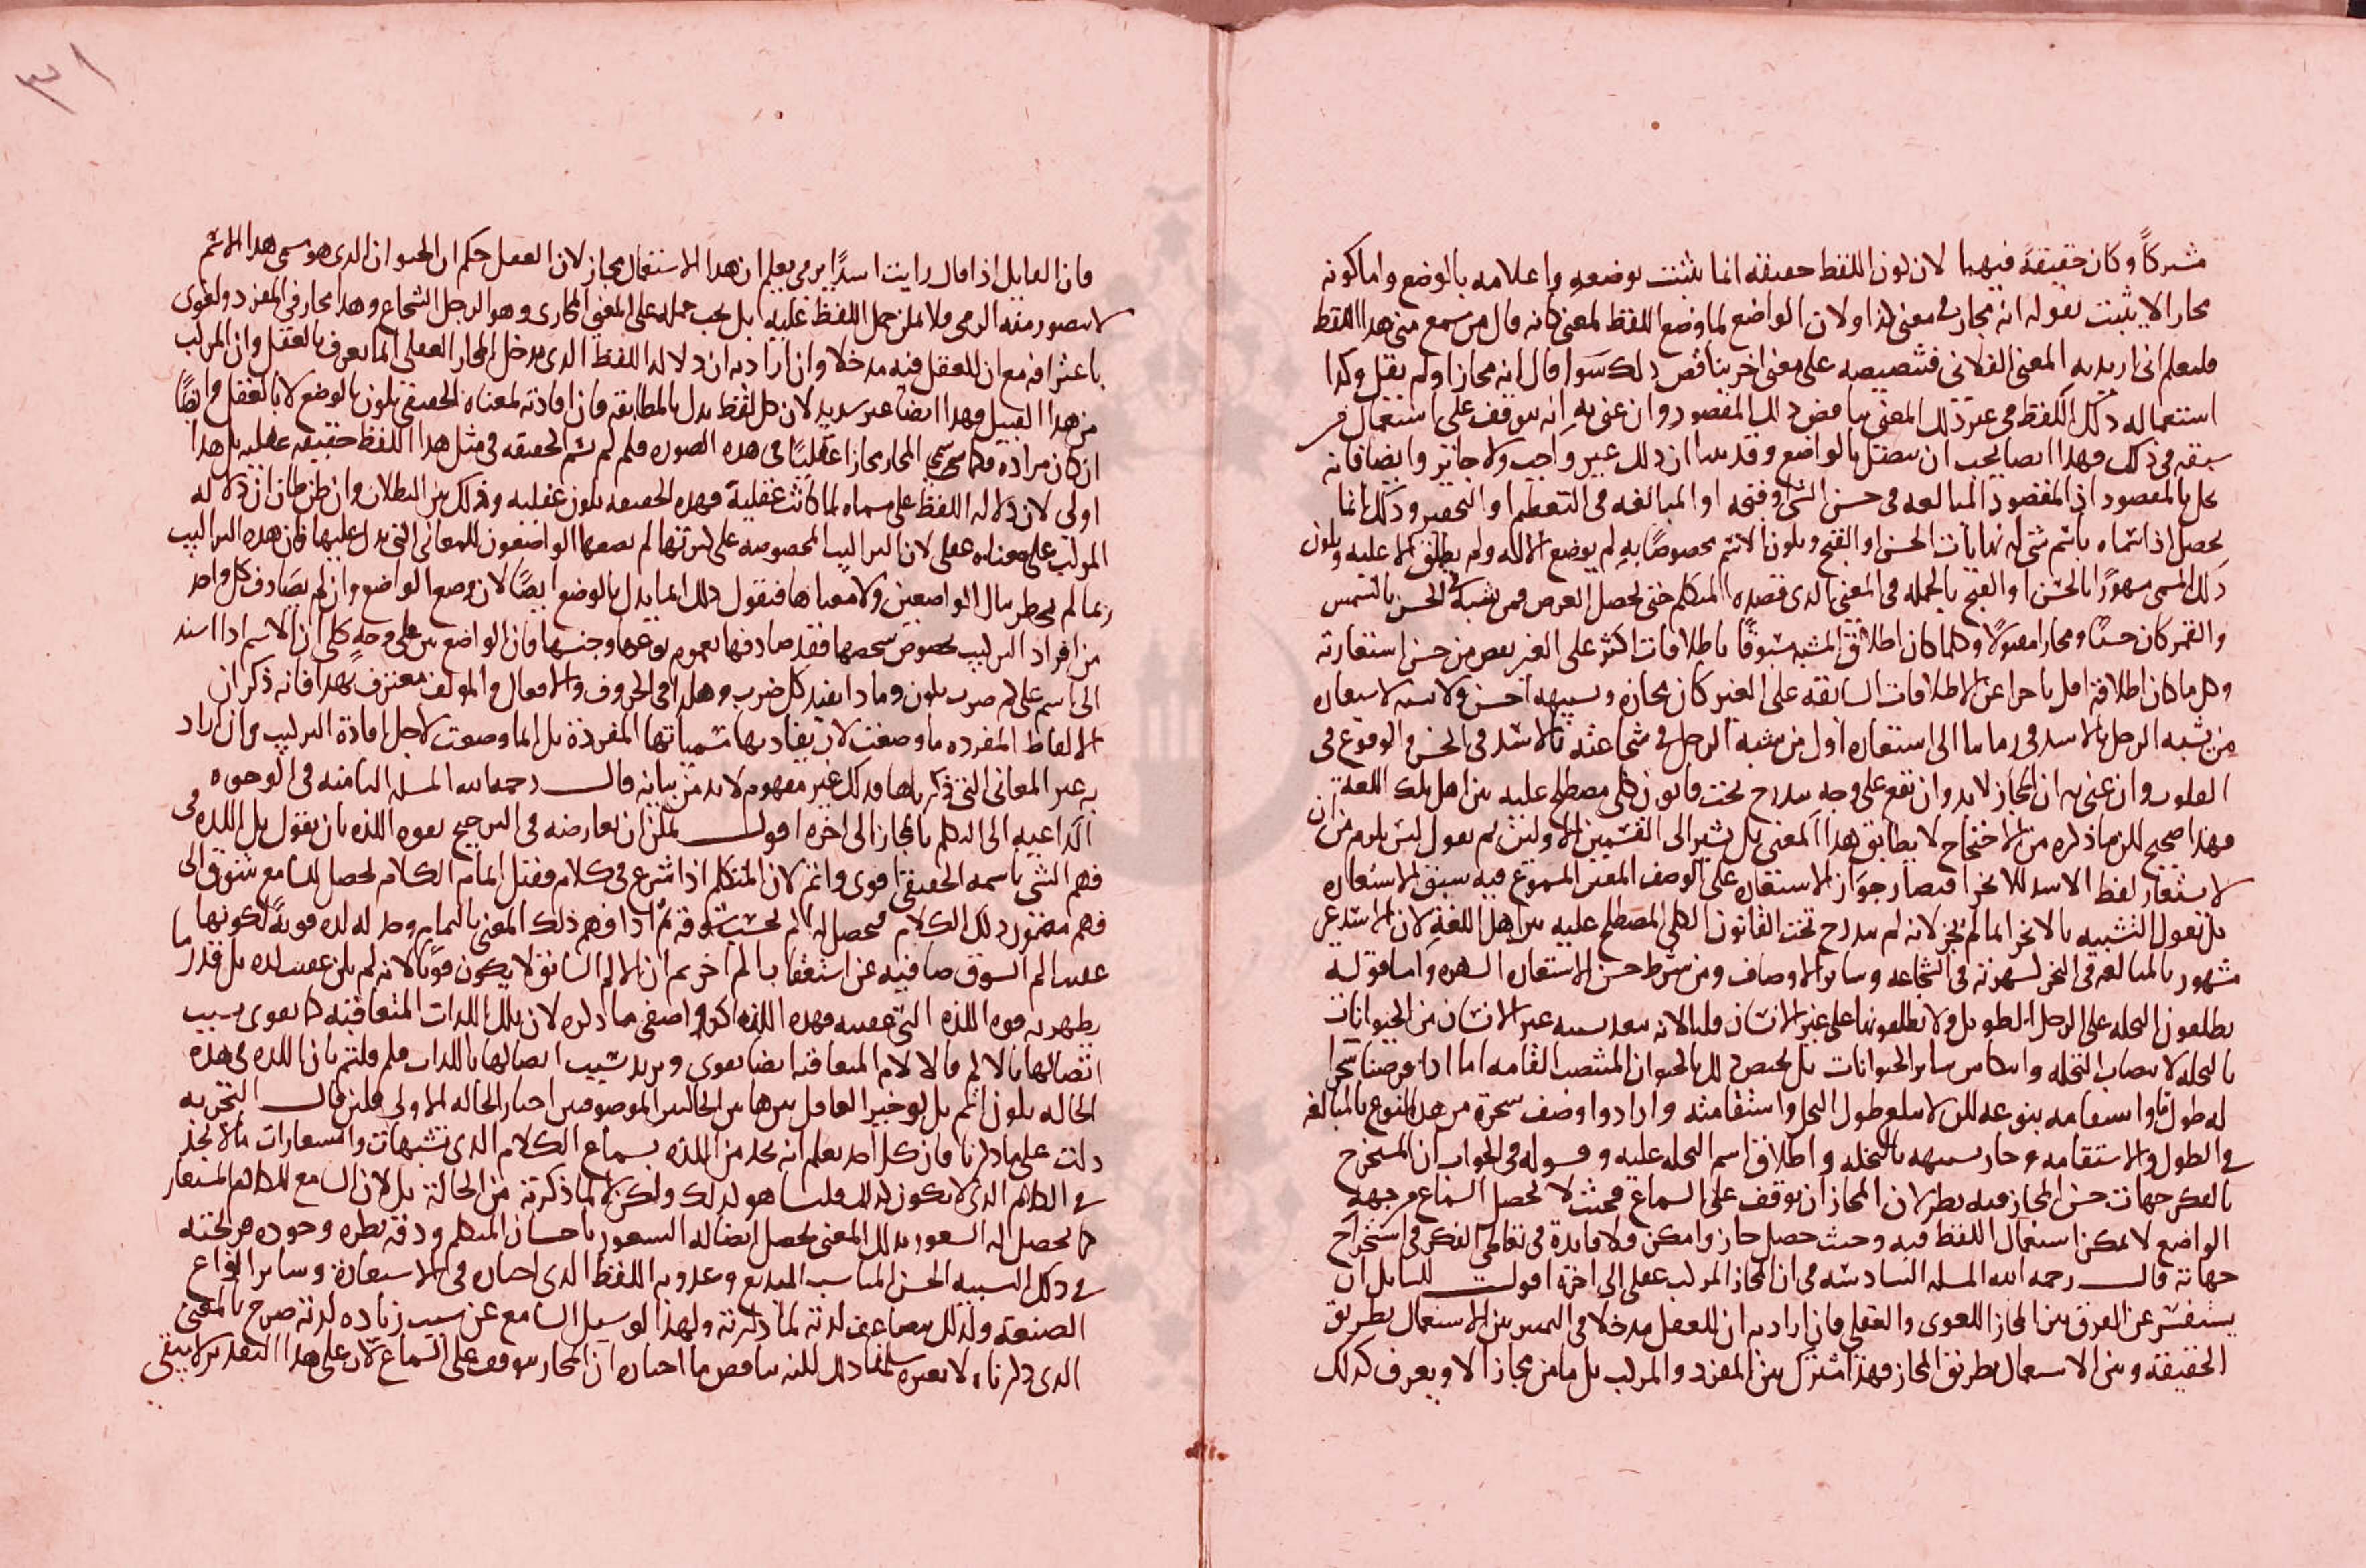 مشتركاً وكان حقيقةً فيهما لان كون اللفظ حقيقة انما يثبت بوضعه واعلامه بالوضع واما كونه
مجازا لا يثبت بقوله انه مجاز في معنى كذا ولان الواضع لما وضع اللفظ لمعنى كانه قال من سمع مني هذا اللفظ
فليعلم اني اريد به المعنى الفلاني فتنصيصه على معنى اخر يناقض ذلك سوا قال انه مجاز او لم يقل وكذا
استعماله ذلك اللفظ في غير ذلك المعنى يناقض ذلك المقصود وان عنى به انه يتوقف على استعمال من
سبقه في ذلك فهذا ايضا يجب ان يتصل بالواضع وقد بينا ان ذلك غير واجب ولا جائز وايضا فانه
يخل بالمقصود اذ المقصود المبالغه في حسن الشي او قبحه او المبالغه في التعظيم او التحقير وذلك انما
يحصل اذا سماه باسم شي له نهايات الحسن او القبح ويكون الاسم مخصوصًا به لم يوضع الا له ولم يطلق الا عليه ويكون
ذلك المسمى مشهورًا بالحسن او القبح بالجمله في المعنى الذي قصده المتكلم حتى يحصل الغرض فمن شبه في الحسن بالشمس
والقمر كان حسنًا ومجازا مقبولًا وكلما كان اطلاق المشبه مسبوقًا باطلاقات اكثر على الغير نقص من حسن استعارته
وكل ما كان اطلاقه اقل تاخرا عن الاطلاقات السابقه على الغير كان مجازه وتشبيهه احسن ولا نسبه لاستعاره
من شبه الرجل بالاسد في زماننا الى استعاره اول من شبه الرجل في شجاعته بالاسد في الحسن والوقوع في
القلوب وان عنى به ان المجاز لا بد وان يقع على وجهٍ يندرج تحت قانون كلي مصطلح عليه بين اهل تلك اللغة
فهذا صحيح لكن ما ذكره من الاحتجاج لا يطابق هذا المعنى بل يشير الى القسمين الاولين ثم نقول ليس يلزم من ان
لا يستعار لفظ الاسد للابخر اقتصار جواز الاستعاره على الوصف المعين المسموع فيه سبق الاستعاره
بل نقول التشبيه بالابخر انما لم يجز لانه لم يندرج تحت القانون الكلي المصطلح عليه بين اهل اللغة لان الاسد غير
مشهور بالمبالغه في البخر لشهرته في الشجاعه وساير الاوصاف ومن شرط حسن الاستعاره الشهره واما قوله
يطلقون النخله على الرجل الطويل ولا يطلقونها على غير الانسان قلنا لانه يبعد تشبيه غير الانسان من الحيوانات
بالنخله لانتصاب النخله وانتكاس ساير الحيوانات بل يختص ذلك بالحيوان المنتصب القامه اما اذا فرضنا شجرا
له طول ما واستقامه بنوعه لكن لا يبلغ طول النخل واستقامته وارادوا وصف شجرة من هذا النوع بالمبالغه
في الطول والاستقامه جاز تشبيهه بالنخله واطلاق اسم النخله عليه وقوله في الجواب ان المستخرج
بالفكر جهات حسن المجاز فيه نظر لان المجاز ان توقف على السماع فحيث لا يحصل السماع من جهة
الواضع لا يمكن استعمال اللفظ فيه وحيث حصل جاز وامكن ولا فايدة في تعاطي الفكر في استخراج
جهاته قال رحمه الله المسله السادسه في ان المجاز المركب عقلي الى اخره اقول للسايل ان
يستفسر عن الفرق بين المجاز اللغوي والعقلي فان اراد به ان للعقل مدخلا في التمييز بين الاستعمال بطريق
الحقيقة وبين الاستعمال بطريق المجاز فهذا مشترك بين المفرد والمركب بل ما من مجاز الا ويعرف كذلك
٣١
فان القايل اذا قال رايت اسدًا يرمي يعلم ان هذا الاستعمال مجاز لان العقل حكم ان الحيوان الذي هو مسمى هذا الاسم
لا يتصور منه الرمي فلا يمكن حمل اللفظ عليه بل يجب حمله على المعنى المجازي وهو الرجل الشجاع وهذا مجاز في المفرد ولغوي
باعترافه مع ان للعقل فيه مدخلا وان اراد به ان دلالة اللفظ الذي يدخل المجاز العقلي انما يعرف بالعقل وان المركب
من هذا القبيل فهذا ايضا غير سديد لان كل لفظ يدل بالمطابقه فان افادته لمعناه الحقيقي يكون بالوضع لا بالعقل وايضًا
ان كان مراده فلما سمي المجاز مجازا عقليًا في هذه الصوره فلم لم يسم الحقيقه في مثل هذا اللفظ حقيقه عقليه بل هذا
اولي لان دلالة اللفظ على مسماه لما كانت عقلية فهذه الحقيقه تكون عقليه وذلك بين البطلان وان ظن ظان ان دلاله
المركب على معناه عقلي لان التراكيب المخصوصه على كثرتها لم يضعها الواضعون للمعاني التي يدل عليها فان هذه التراكيب
ربما لم يخطر ببال الواضعين ولا معناها فنقول ذلك انما يدل بالوضع ايضًا لان وضع الواضع وان لم يصادف كل واحد
من افراد التركيب بخصوص شخصها فقد صادفها بعموم نوعها وجنسها فان الواضع بين على وجهٍ كلي ان الاسم اذا اسند
الى اسم على كم ضرب يكون وماذا يفيد كل ضرب وهكذا في الحروف والافعال والمولف معترف بهذا فانه ذكر ان
الالفاظ المفرده ما وضعت لان يفاد بها مسمياتها المفردة بل انما وضعت لاجل افادة التركيب وان اراد
به غير المعاني التي ذكرناها فذلك غير مفهوم لا بد من بيانه قال رحمه الله المسله الثامنه في الوجوه
الداعيه الى التكلم بالمجاز الى اخره اقول يمكن ان يعارضه في الترجيح بقوه اللذه بان يقول بل اللذه في
فهم الشي باسمه الحقيقي اقوى واتم لان المتكلم اذا شرع في كلام فقبل اتمام الكلام يحصل للسامع شوق الى
فهم مضمون ذلك الكلام فيحصل له الم بحسب شوقه ثم اذا فهم ذلك المعنى بالتمام حصل له لذه قوية لكونها
عقيب الم الشوق صافيه عن استعقاب الم اخر ثم ان الالم السابق لا يكون قويا لانه لم يكن عقيب لذه بل قدر ما
يظهر به قوه اللذه التي عقيبه فهذه اللذه اكد واصفى مما ذكره لان تلك اللذات المتعاقبه كما تقوى بسبب
اتصالها بالالم فالالام المتعاقبه ايضا تقوى وتزيد بسبب اتصالها باللذات فلم قلتم بان اللذه في هذه
الحاله يكون اتم بل لو خير العاقل بين هاتين الحالتين الموصوفتين اختار الحاله الاولى فلين قال التجربه
دلت على ما ذكرنا فان كل احد يعلم انه يجد من اللذه بسماع الكلام الذي تشبيهات واستعارات ما لا يجد
في الكلام الذي لا يكون كذلك قلنا هو كذلك ولكن لا لما ذكرته من الحالة بل لان السامع للكلام المستعار
كما يحصل له الشعور بذلك المعنى يحصل ايضا له الشعور باحسان المتكلم ودقه نظره وجوده قريحته
في ذلك التشبيه الحسن المناسب البديع وعذوبه اللفظ الذي اختاره في الاستعارة وساير انواع
الصنعه ولذلك يتضاعف لذته لما ذكرته ولهذا لو سيل السامع عن سبب زياده لذته صرح بالمعنى
الذي ذكرناه لا بغيره سلمنا ذلك لكنه يناقض ما اختاره ان المجاز يتوقف على السماع لان على هذا التقدير لا يبقى